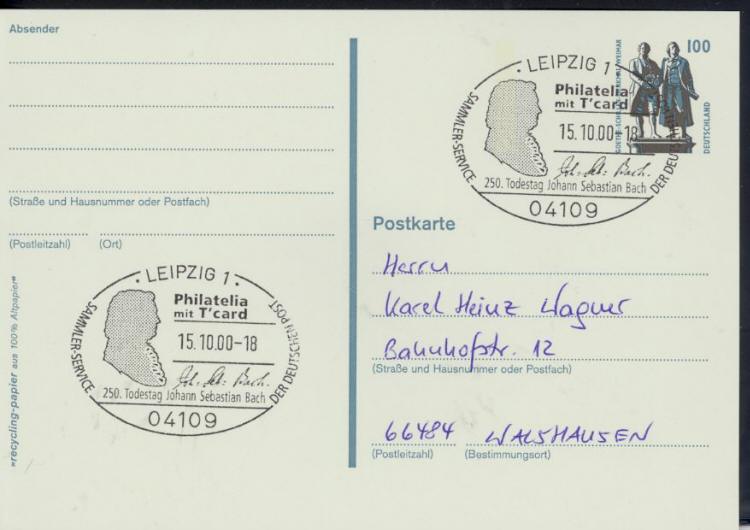 Absender
(Straße und Hausnummer oder Postfach)
(Postleitzahl)
(Ort)
»recycling-papier aus 100% Altpapier«
· LEIPZIG 1 ·
SAMMLER-SERVICE
Philatelia
mit T'card
15.10.00-18
Joh. Seb. Bach.
250. Todestag Johann Sebastian Bach
DER DEUTSCHEN POST
04109
100
DEUTSCHLAND
· LEIPZIG 1 ·
SAMMLER-SERVICE
Philatelia
mit T'card
15.10.00-18
Joh. Seb. Bach.
250. Todestag Johann Sebastian Bach
04109
Postkarte
Herrn
Karel Heinz Wagner
Bahnhofstr. 12
(Straße und Hausnummer oder Postfach)
66484 WALSHAUSEN
(Postleitzahl)
(Bestimmungsort)